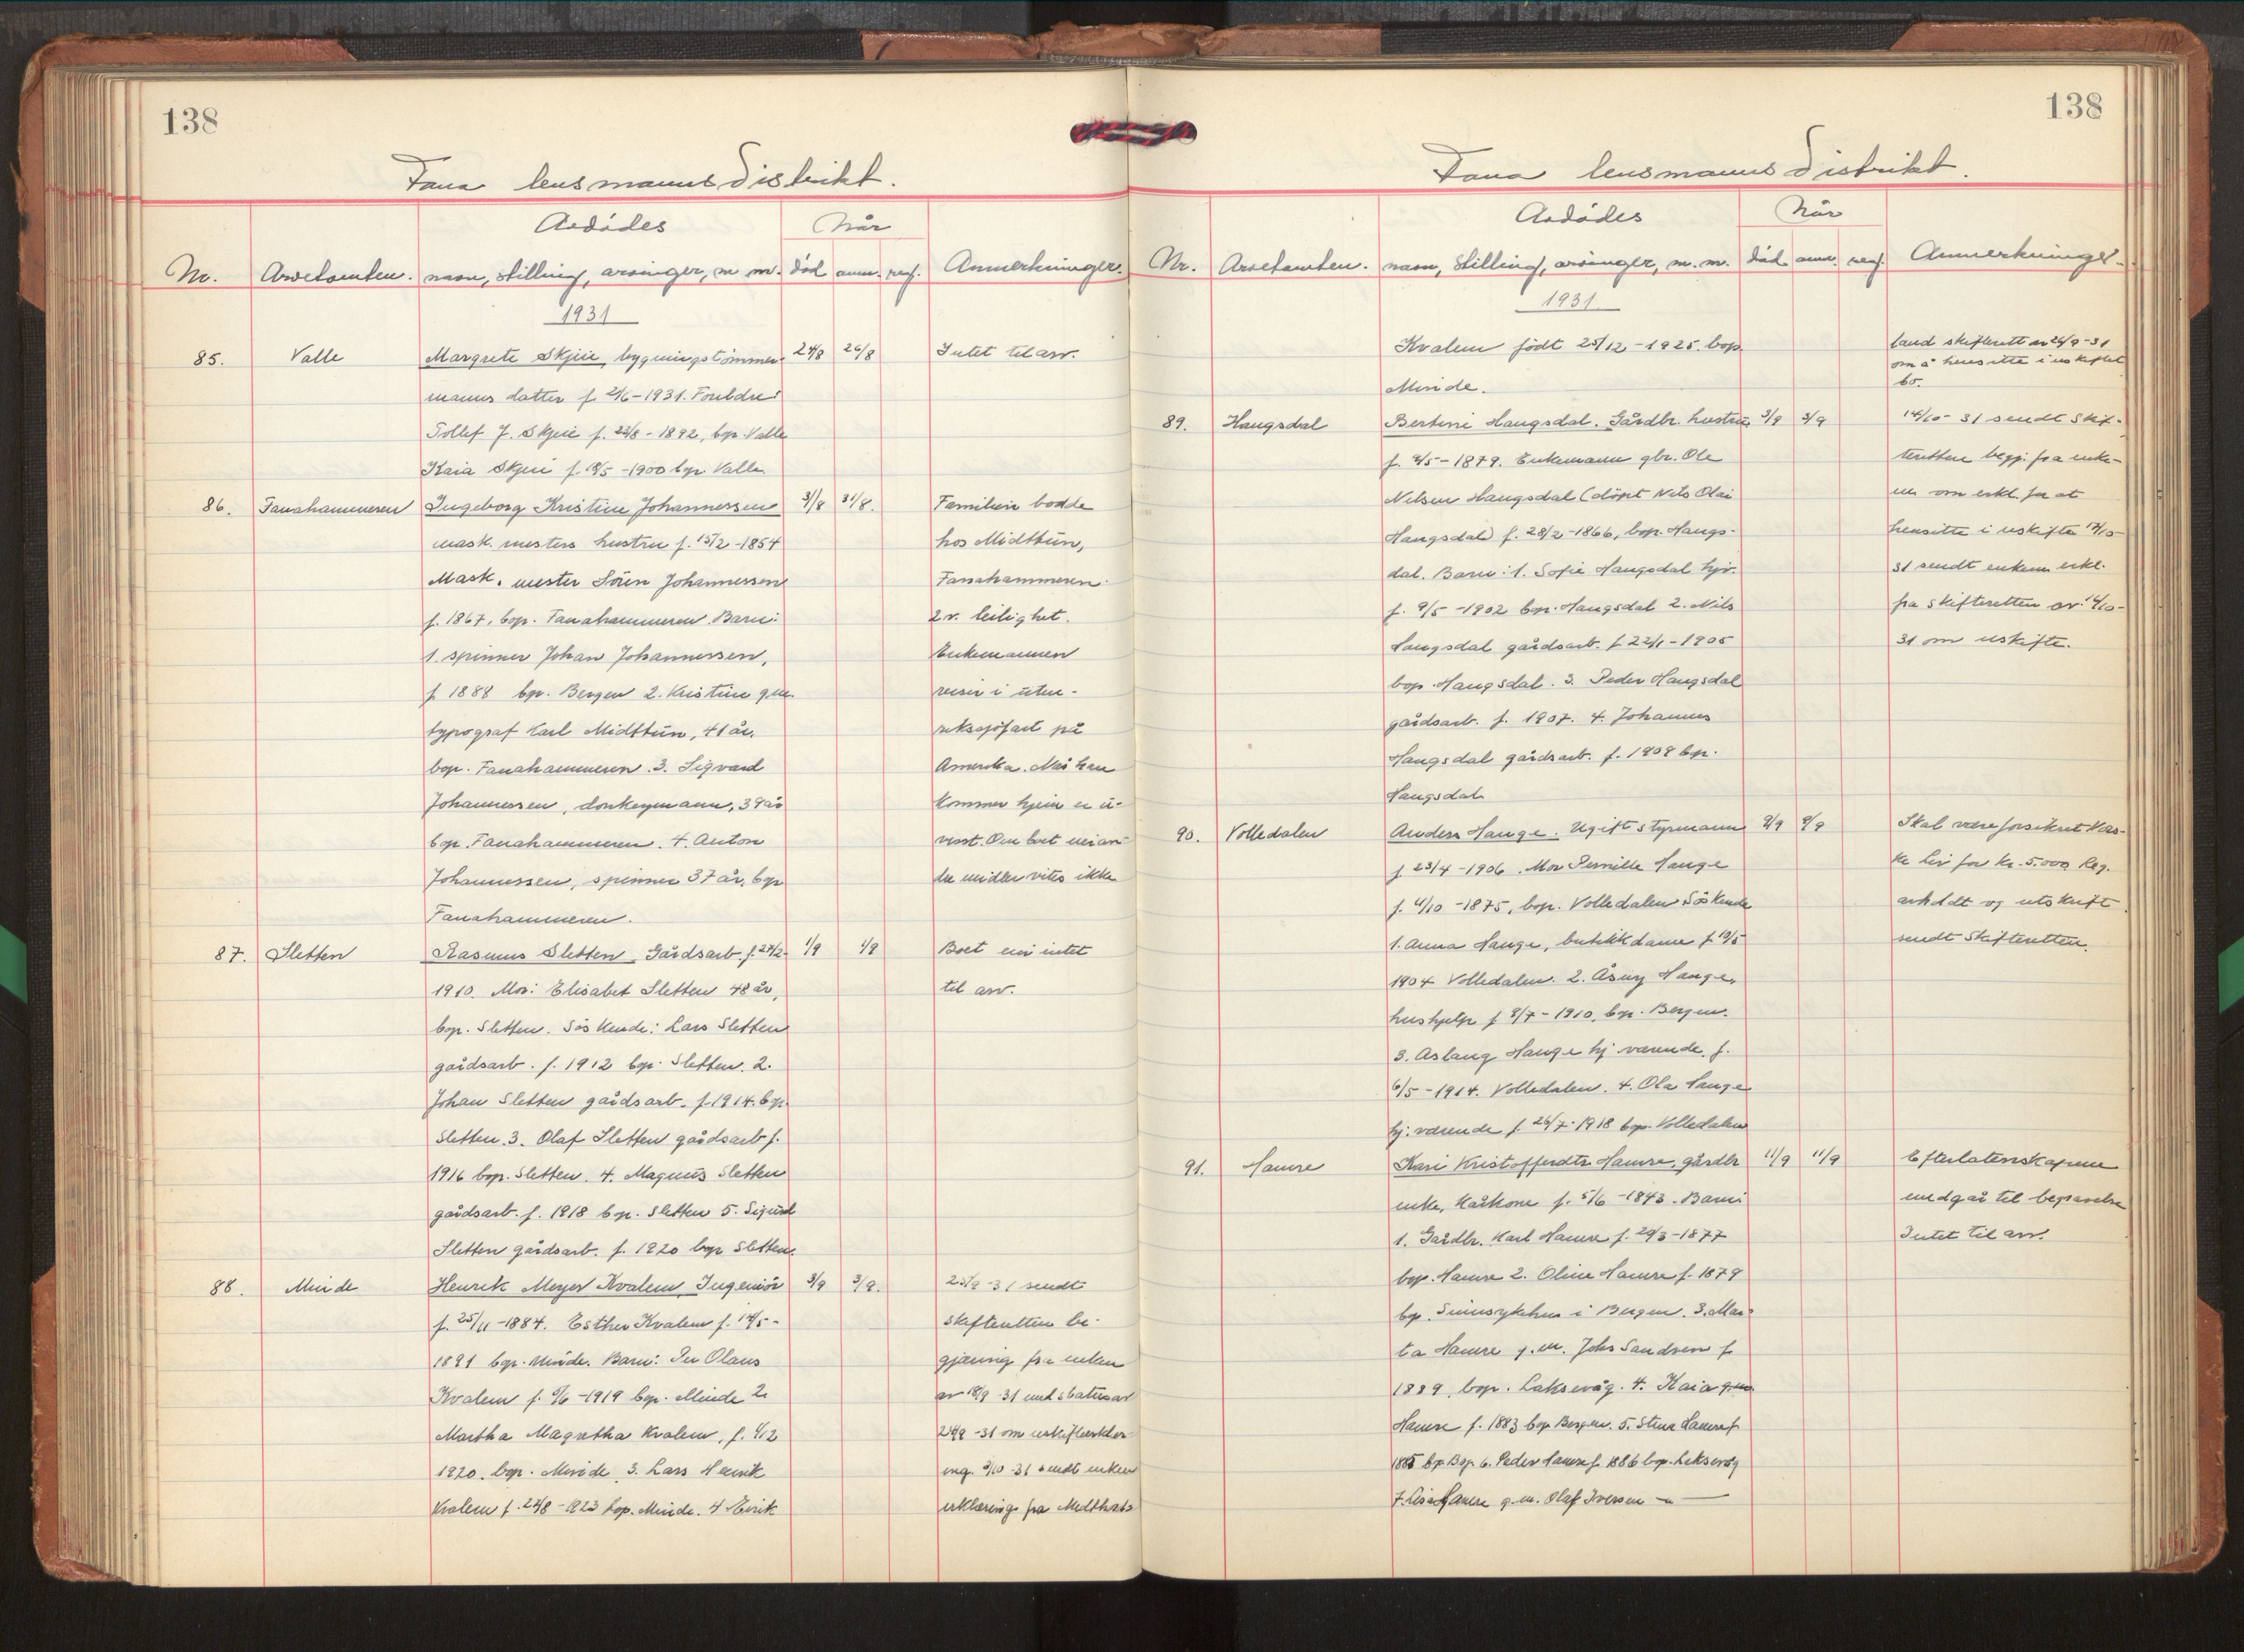 138
Fana lensmannsdistrikt.
Avdødes
Når
Nr. Arvetomten. navn, stilling, arvinger, m.m. død anm. reg. Anmerkninger.
1931
85. Valle Margrete Skjeie, bygningstømmer- 24/8 26/8 Intet til arv.
manns datter f. 2/6-1931. Foreldre:
Tollef J. Skjeie f. 23/8-1892, bp. Valle
Kaia Skjeie f. 18/5-1900 bp. Valle.
86. Fanahammeren Ingeborg Kristine Johannessen 31/8 31/8. Familien bodde
mask. mesters hustru f. 15/2-1854 hos Midttun,
Mask. mester Sören Johannessen Fanahammeren.
f. 1867, bop. Fanahammeren. Barn: 2 v. leilighet.
1. spinner Johan Johannessen, Enkemannen
f. 1888 bp. Bergen 2. Kristine g.m. reiser i uten-
typograf Karl Midttun, 41 år. rikssjöfart på
bop. Fanahammeren. 3. Sigvard Amerika. Når han
Johannessen, donkeymann, 39 år kommer hjem er u-
bop. Fanahammeren. 4. Anton visst. Om boet eier an-
Johannessen, spinner 37 år, bp. dre midler vites ikke
Fanahammeren.
87. Sletten Rasmus Sletten, Gårdsarb. f. 27/2- 1/9 1/9 Boet eier intet
1910. Mor: Elisabet Sletten 48 år, til arv.
bop. Sletten. Söskende: Lars Sletten
gårdsarb. f. 1912 bp. Sletten. 2.
Johan Sletten gårdsarb. f. 1914. bp.
Sletten. 3. Olaf Sletten gårdsarb f.
1916 bop. Sletten. 4. Magnus Sletten
gårdsarb. f. 1918 bop. Sletten 5. Sigurd
Sletten gårdsarb. f. 1920 bop Sletten.
88. Minde Henrik Meyer Kvalem, Ingeniör 3/9 3/9. 23/9-31 sendt
f. 25/11-1884. Esther Kvalem f. 14/5- skifteretten be-
1891 bop. Minde. Barn: Per Olaus gjæring fra enken
Kvalem f. 5/6-1919 bop. Minde 2. av 18/9-31 med status av
Martha Magretha Kvalem, f. 4/12 om uskifteerklær-
1920. bop. Minde. 3. Lars Henrik ing. 9/10-31 sendt enken
Kvalem f. 24/8-1923 bop. Minde. 4 Eirik erklæring fra Midthord-
138
Fana lensmannsdistrikt.
Avdødes
Når
Nr. Arvetomten. navn, stilling, arvinger, m.m. död anm. reg. Anmerkninger
1931
Kvalem födt 25/12-1925. bop. land skifterett av 26/9-31
Minde. om å hensitte i uskiftet
bo.
89. Haugsdal Bertine Haugsdal. Gårdbr. hustru 3/9 3/9 14/10-31 sendt skif-
f. 9/5-1879. Enkemann gbr. Ole teretten begj. fra enke-
Nilsen Haugsdal (döpt Nils Olai m. om erkl. for at
Haugsdal) f. 28/2-1866, bop. Haugs- hensitte i uskifte 17/10-
dal. Barn: 1. Sofie Haugsdal hjv. 31 sendt enkem. erkl.
f. 9/5-1902 bop. Haugsdal 2. Nils fra skifteretten av 14/10-
Haugsdal gårdsarb. f. 22/1-1905 31 om uskifte.
bop. Haugsdal. 3. Peder Haugsdal
gårdsarb. f. 1907. 4. Johannes
Haugsdal gårdsarb. f. 1909 bp.
Haugsdal.
90. Volledalen Anders Hauge. Ugift styrmann 9/9 9/9 Skal være forsikret Nors-
f. 23/4-1906. Mor Pernille Hauge ke liv for kr. 5.000 Reg.
f. 4/10-1875, bop. Volledalen Söskende avholdt og utskrift
1. Anna Hauge, butikkdame f. 10/5 sendt Skifteretten.
1904 Volledalen. 2. Åsny Hauge,
hushjelp f. 8/7-1910, bp. Bergen.
3. Aslaug Hauge hj. værende f.
6/5-1914. Volledalen. 4. Ola Hauge
hj. værende f. 26/7-1918 bop. Volledalen
91. Hamre Kari Kristoffersdtr. Hamre, gårdbr 11/9 11/9 Efterlatenskapene
enke, kårkone f. 5/6-1843. Barn: medgår til begravelse
1. Gårdbr. Karl Hamre f. 29/3-1877 Intet til arv.
bop. Hamre 2. Oline Hamre f. 1879
bop. Sinnsykehus i Bergen. 3. Mar-
ta Hamre g.m. Johs Sandven f.
1889. bop. Laksevåg. 4. Kaia
Hamre f. 1883 bop. Bergen. 5. Stina Hamre f
1885 bp. Bgn. 6. Peder Hamre f. 1886 bop. Laksevåg
7. Hamre g.m. Olaf Iversen — " —